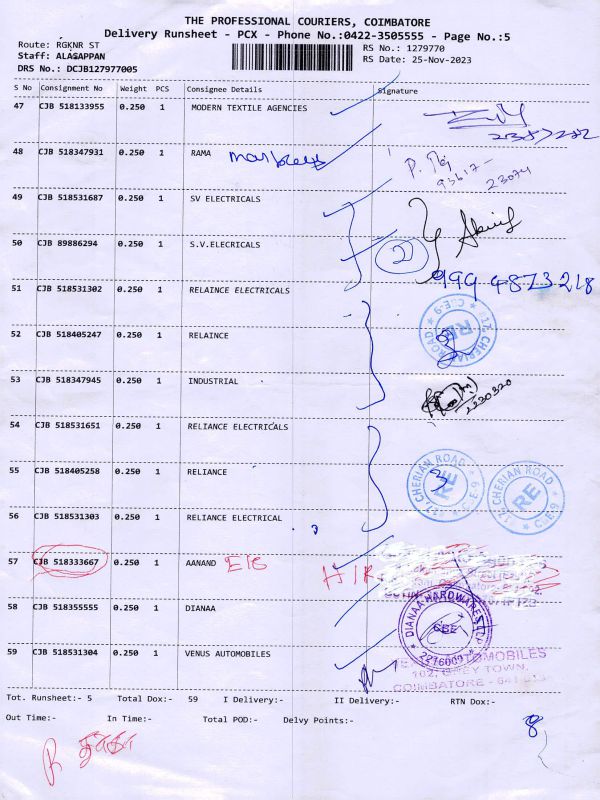 THE PROFESSIONAL COURIERS, COIMBATORE
Delivery Runsheet - PCX - Phone No.:0422-3505555 - Page No.:5
Route: RGKNR ST
RS No.: 1279770
Staff: ALAGAPPAN
RS Date: 25-Nov-2023
DRS No.: DCJB127977005
S No Consignment No Weight PCS Consignee Details Signature
47 CJB 518133955 0.250 1 MODERN TEXTILE AGENCIES
48 CJB 518347931 0.250 1 RAMA
49 CJB 518531687 0.250 1 SV ELECTRICALS
50 CJB 89886294 0.250 1 S.V.ELECRICALS
2
999 4873218
51 CJB 518531302 0.250 1 RELAINCE ELECTRICALS
52 CJB 518405247 0.250 1 RELAINCE
117, CHERIAN ROAD RE
53 CJB 518347945 0.250 1 INDUSTRIAL
54 CJB 518531651 0.250 1 RELIANCE ELECTRICALS
55 CJB 518405258 0.250 1 RELIANCE
117, CHERIAN ROAD RE
CHERIAN ROAD RE
56 CJB 518531303 0.250 1 RELIANCE ELECTRICAL
57 CJB 518333667 0.250 1 AANAND
58 CJB 518355555 0.250 1 DIANAA
DIANAA HARDWARES LLP
CBE
59 CJB 518531304 0.250 1 VENUS AUTOMOBILES
AUTOMOBILES
TOWN,
COIMBATORE - 641
Tot. Runsheet:- 5 Total Dox:- 59 I Delivery:- II Delivery:- RTN Dox:-
Out Time:- In Time:- Total POD:- Delvy Points:-
8